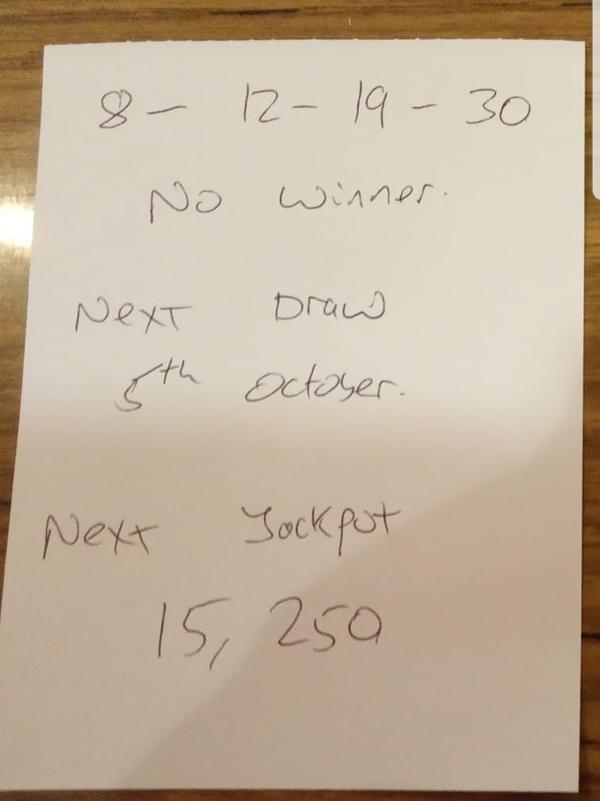 8 - 12 - 19 - 30
No winner.
Next Draw
5th October.
Next Jackpot
15, 250